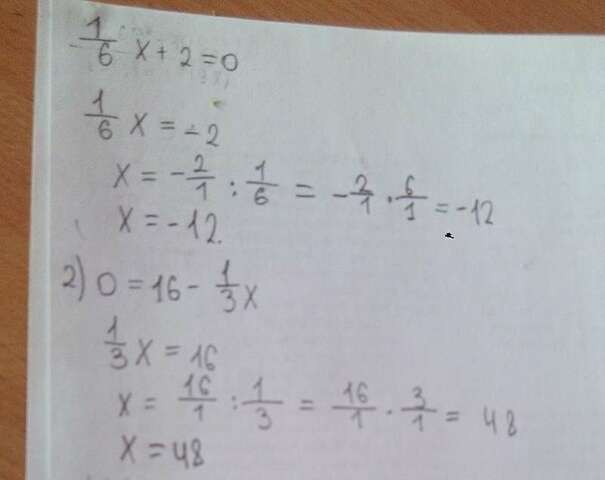 1/6 x + 2 = 0
1/6 x = -2
x = -2/1 : 1/6 = -2/1 · 6/1 = -12
x = -12.
2) 0 = 16 - 1/3 x
1/3 x = 16
x = 16/1 : 1/3 = 16/1 · 3/1 = 48
x = 48